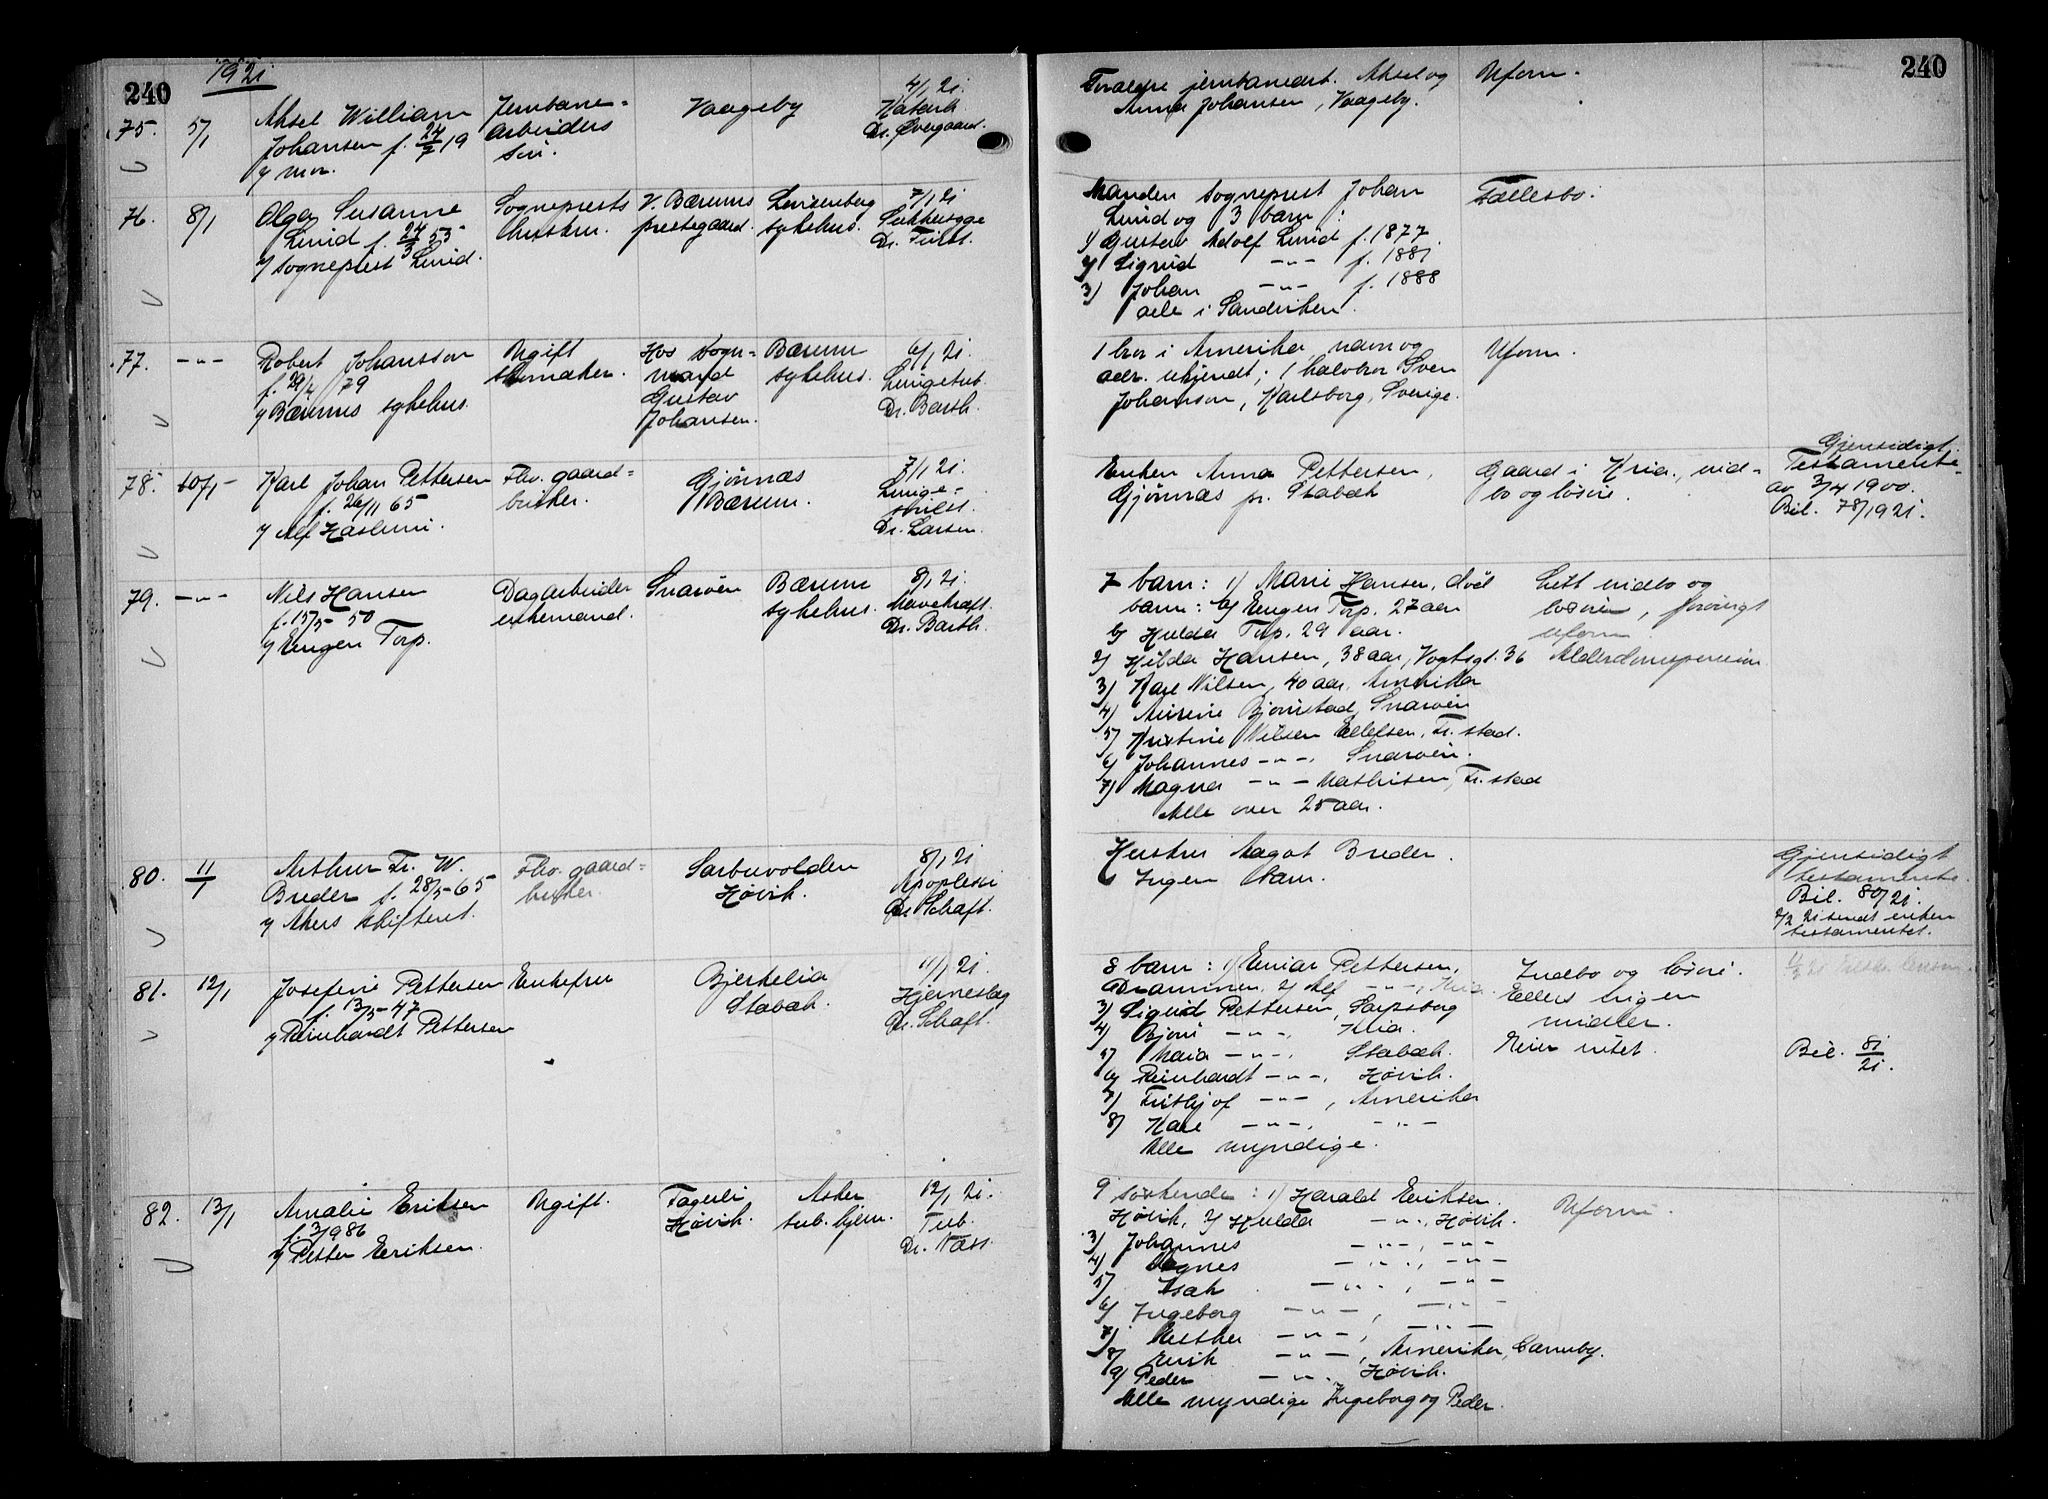 240
1921
240
75.
5/1
Aksel William
Johansen f. 24/7 19
v/ mor.
Jernbane-
arbeiders
søn.
Vaageby
4/1 21.
Katarh
Dr. Overgaard.
Forældre jernbanearb. Aksel og
Anna Johansen, Vaageby.
Uform.
76.
8/1
Olga Susanne
Lund f. 24/3 55
v/ sogneprest Lund.
Sogneprests
hustru.
V. Bærums
prestegaard.
Lovisenberg
sykehus.
7/1 21
Sukkersyge
Dr. Fürst.
Manden sogneprest Johan
Lund og 3 barn:
1) Gustav Adolf Lund f. 1877.
2) Sigrid -"- f. 1881
3) Johan -"- f. 1888
alle i Sandviken.
Fællesbo.
77.
-"-
Robert Johansson
f. 29/4 79
v/ Bærums sykehus.
Ugift
skomaker.
Hos vogn-
mand
Gustav
Johansen.
Bærum
sykehus.
6/1 21.
Lungetub.
Dr. Barth.
1 bror i Amerika, navn og
adr. ukjendt; 1 halvbror Sven
Johanson, Karlsborg, Sverige.
Uform.
78.
10/1
Karl Johan Pettersen
f. 26/11 65
v/ Alf Haslum.
Fhv. gaard-
bruker.
Gjønnæs
Bærum.
7/1 21.
Lunge-
Dr. Larsen.
Enken Anna Pettersen,
Gjønnæs pr. Stabæk
Gaard i Kria., ind-
bo og løsøre.
Gjensidigt
Testamente
av 3/4 1900.
Bil. 78/1921.
79.
-"-
Nils Hansen
f. 15/5-50
v/ Eugen Torp.
Dagarbeider
enkemand.
Snarøen
Bærum
sykehus.
8/1 21.
Mavekræft.
Dr. Barth.
7 barn: 1) Marie Hansen, død
barn: a) Eugen Torp. 27 aar
b) Hulda Torp. 29 aar.
2) Hilda Hansen, 38 aar, Vogtsgt. 36
3) Karl Nilsen, 40 aar, Amerika
4) Bjørnstad, Snarøen
5) Kristine Nilsen Ellefsen, Fr.stad.
6) Johannes -"-, Snarøen.
7) Magna -"- Mathisen, Fr.stad
Alle over 25 aar.
Litt indbo og
løsøre, forøvrigt
uform.
Alderdomspension
80.
11/1
Arthur Fr. W.
Breder f. 28/5-65
v/ Akers skifteret.
Fhv. gaard-
bruker.
Sarbuvolden
Høvik.
8/1 21
Apoplexi
Dr. Schaft.
Hustru Magot Breder.
Ingen barn.
Gjensidigt
testamente.
Bil. 80/21.
2/2 21 sendt enken
testamentet.
81.
12/1
Josefine Pettersen
f. 13/5-47
v/ Reinhardt Pettersen
Enkefru
Bjerkelia
Stabæk.
11/1 21.
Hjerneslag
Dr. Schaft.
8 barn: 1) Einar Pettersen,
Drammen, 2) Alf -"-, Kria.
3) Sigurd Pettersen, Sarpsborg
4) Bjørn -"-, Kria.
5) Maia -"-, Stabæk.
6) Reinhardt -"-, Høvik.
7) Fritjof -"-, Amerika
8) Karl -"-, -"-
Alle myndige.
Indbo og løsøre.
Ellers ingen
midler.
Eier intet.
Bil. 81/21.
82.
13/1
Amalie Eriksen
f. 3/9 86
v/ Petter Eriksen.
Ugift.
Fagerli
Høvik.
Asker
tub. hjem.
12/1 21.
Tub.
Dr. Næss.
9 søskende: 1) Harald Eriksen.
Høvik, 2) Hulda -"-, Høvik.
3) Johannes -"-, -"-
4) Agnes -"-, -"-
5) Isak -"-, -"-
6) Ingeborg -"-, -"-
7) Esther -"-, -"-
8) Erik -"-, Amerika,
9) Peder -"-, Høvik.
Alle myndige Ingeborg og Peder.
Uform.